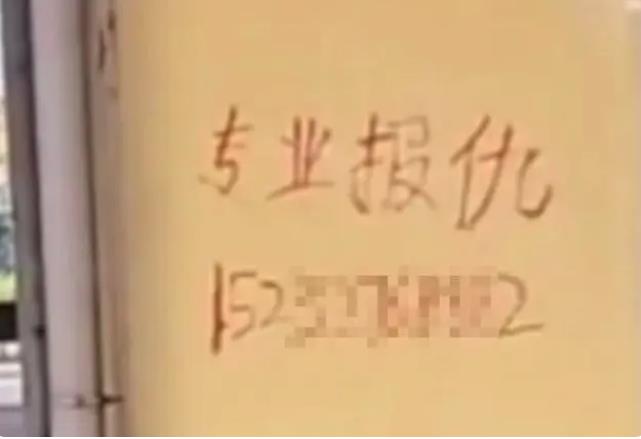 专业报仇
152 2